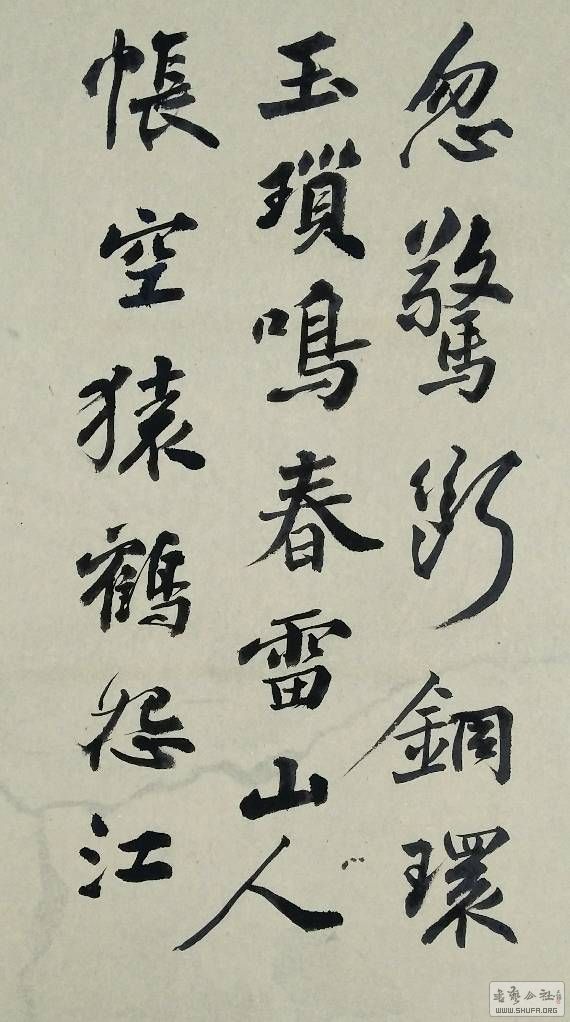 忽驚斷銅環
玉瑣鳴春雷山人
帳空猿鶴怨江
书藝公社
WWW.SHUFA.ORG